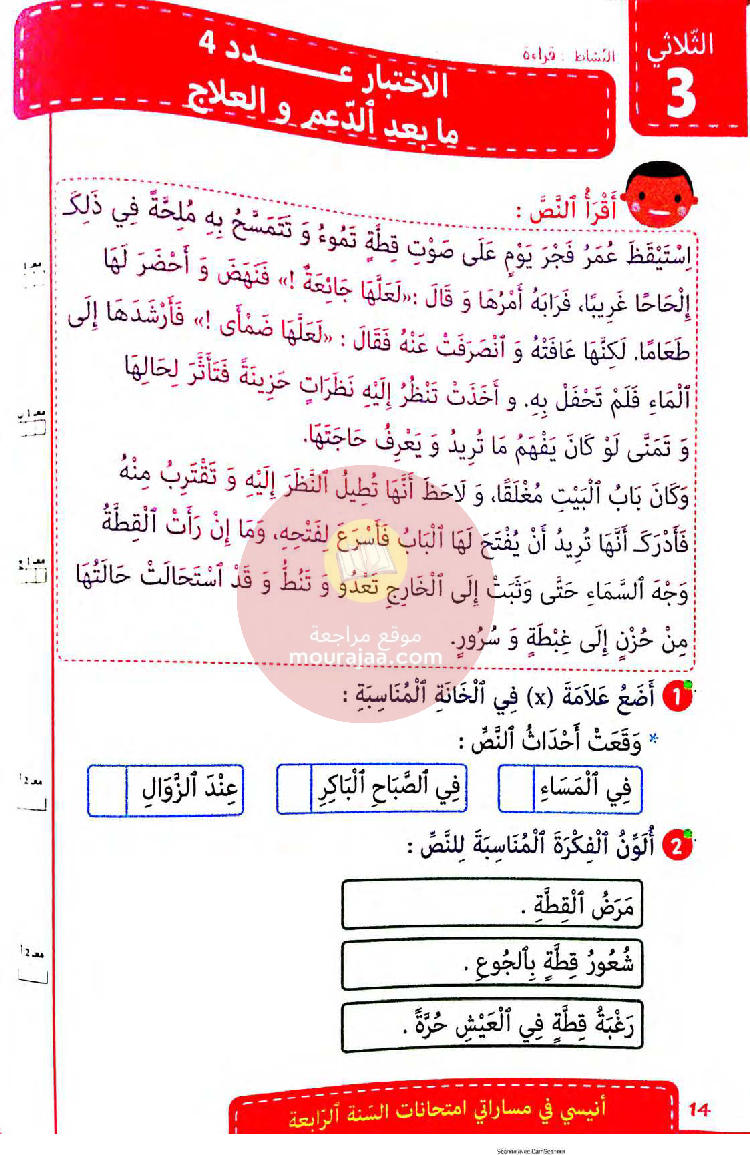 الثّلاثي
3
النّشاط : قراءة
الاختبار عـــــدد 4
ما بعد ٱلدّعم و العلاج
أَقْرَأُ ٱلنَّصَّ :
اِسْتَيْقَظَ عُمَرُ فَجْرَ يَوْمٍ عَلَى صَوْتِ قِطَّةٍ تَمُوءُ وَ تَتَمَسَّحُ بِهِ مُلِحَّةً فِي ذَلِكَ
إِلْحَاحًا غَرِيبًا، فَرَابَهُ أَمْرُهَا وَ قَالَ :«لَعَلَّهَا جَائِعَةٌ !» فَنَهَضَ وَ أَحْضَرَ لَهَا
طَعَامًا. لَكِنَّهَا عَافَتْهُ وَ ٱنْصَرَفَتْ عَنْهُ فَقَالَ : «لَعَلَّهَا ضَمْأَى !» فَأَرْشَدَهَا إِلَى
ٱلْمَاءِ فَلَمْ تَحْفَلْ بِهِ. و أَخَذَتْ تَنْظُرُ إِلَيْهِ نَظَرَاتٍ حَزِينَةً فَتَأَثَّرَ لِحَالِهَا
وَ تَمَنَّى لَوْ كَانَ يَفْهَمُ مَا تُرِيدُ وَ يَعْرِفُ حَاجَتَهَا.
وَكَانَ بَابُ ٱلْبَيْتِ مُغْلَقًا، وَ لَاحَظَ أَنَّهَا تُطِيلُ ٱلنَّظَرَ إِلَيْهِ وَ تَقْتَرِبُ مِنْهُ
فَأَدْرَكَ أَنَّهَا تُرِيدُ أَنْ يُفْتَحَ لَهَا ٱلْبَابُ فَأَسْرَعَ لِفَتْحِهِ، وَمَا إِنْ رَأَتْ ٱلْقِطَّةُ
وَجْهَ ٱلسَّمَاءِ حَتَّى وَثَبَتْ إِلَى ٱلْخَارِجِ تَعْدُو وَ تَنُطُّ وَ قَدْ ٱسْتَحَالَتْ حَالَتُهَا
مِنْ حُزْنٍ إِلَى غِبْطَةٍ وَ سُرُورٍ.
موقع مراجعة
mourajaa.com
1 أَضَعُ عَلاَمَةَ (x) فِي ٱلْخَانَةِ ٱلْمُنَاسِبَةِ :
* وَقَعَتْ أَحْدَاثُ ٱلنَّصِّ :
فِي ٱلْمَسَاءِ فِي ٱلصَّبَاحِ ٱلْبَاكِرِ عِنْدَ ٱلزَّوَالِ
2 أُلَوِّنُ ٱلْفِكْرَةَ ٱلْمُنَاسِبَةَ لِلنَّصِّ :
مَرَضُ ٱلْقِطَّةِ .
شُعُورُ قِطَّةٍ بِٱلجُوعِ .
رَغْبَةُ قِطَّةٍ فِي ٱلْعَيْشِ حُرَّةً .
معـ 2 أ
معـ 2 أ
14 أنيسي في مساراتي امتحانات السّنة ٱلرّابعة